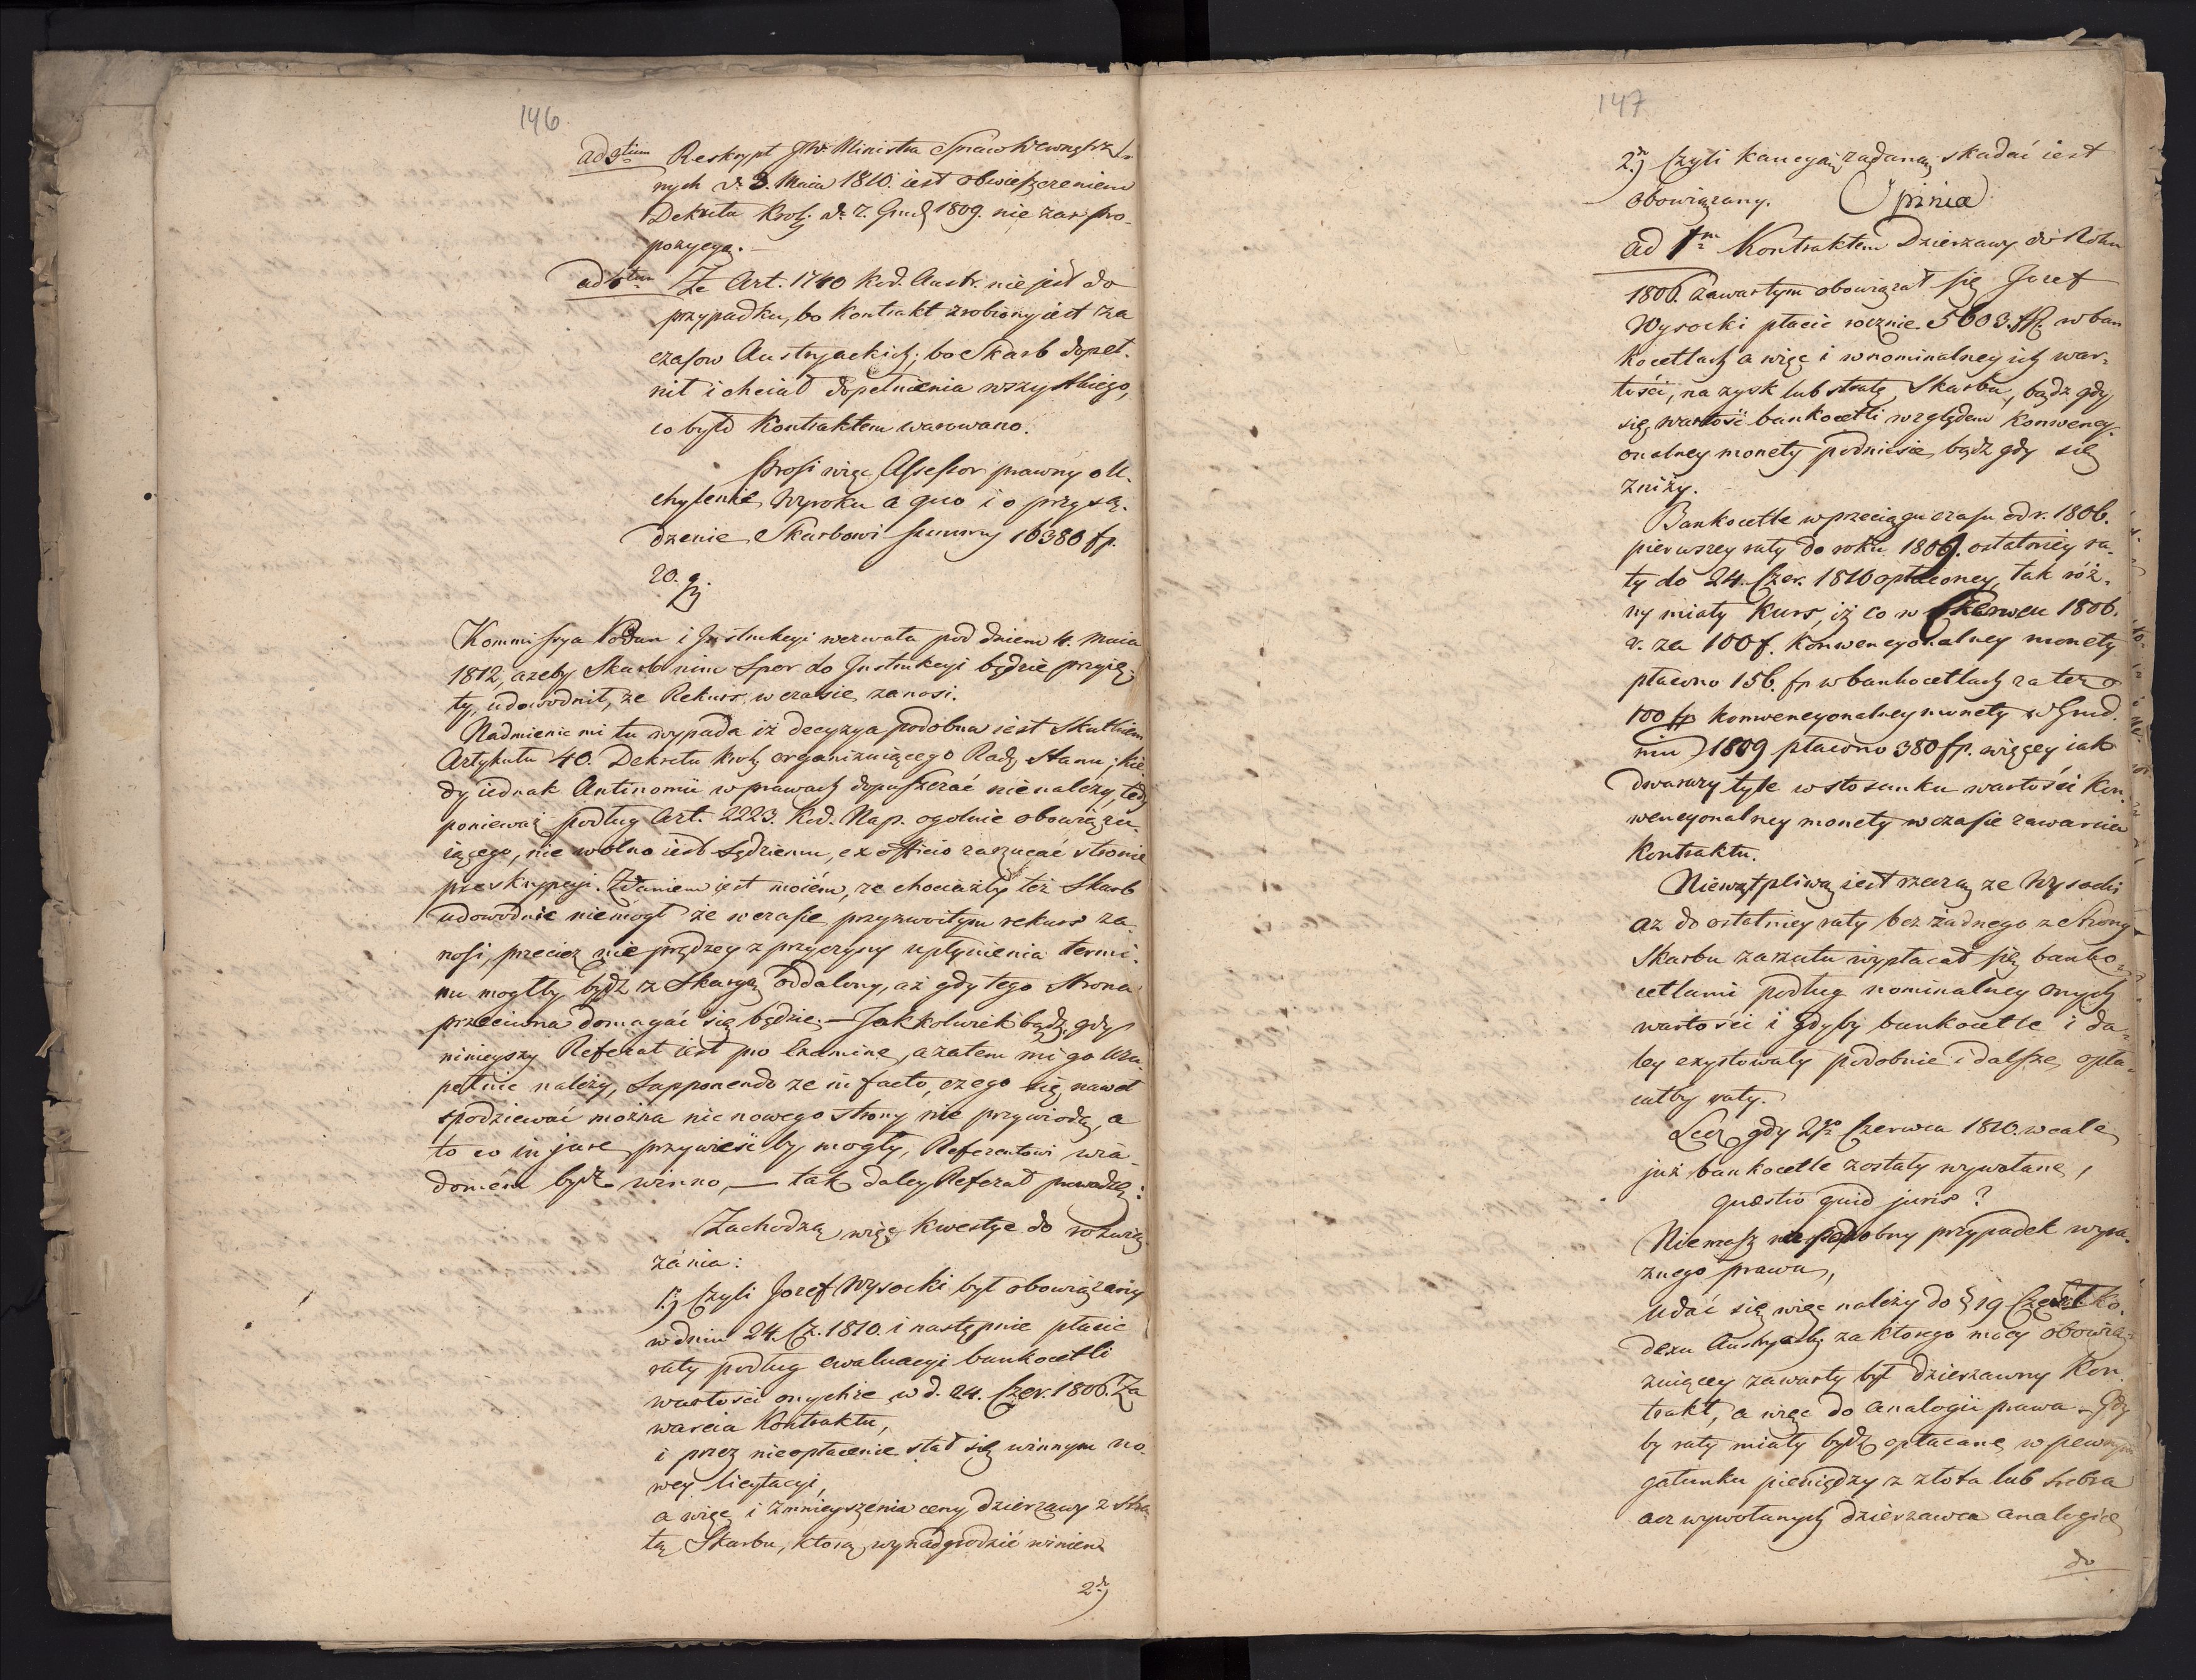 146
ad 5tum Reskrypt JW. Ministra Spraw Wewnętrz-
nych d. 3. Maia 1810. iest obwieszczeniem
Dekretu Krolj. d. 7. Grud. 1809. nie zas pro-
pozycyą.
ad 6tum Że Art. 1740 Kod. Austr. nie jest do
przypadku, bo Kontrakt zrobiony iest za
czasow Austryackich; bo Skarb dopeł-
nił i chciał dopełnienia wszystkiego,
co było Kontraktem warowano.
Prosi więc Assessor prawny o U-
chylenie Wyroku a quo i o przysą-
dzenie Skarbowi summy 16380 fp.
20. g.
Kommissya Podan i Instrukcyi wezwała pod dniem 4. maia
1812, azeby Skarb nim Spor do Instrukcyi będzie przyię-
ty, udowodnił, ze Rekurs w czasie zanosi.
Nadmienic mi tu wypada iż decyzya podobna iest Skutkiem
Artykułu 40. Dekretu Krolj organizuiącego Radę Stanu; kie-
dy iednak Antinomii w prawach dopuszczać nienależy, tedy
ponieważ podług Art. 2223. Kod. Nap. ogolnie obowiązu-
iącego, nie wolno iest Sędziemu, ex officio zarzucać stronie
preskrypcyi. Zdaniem jest moiém, ze chociażby też Skarb
udowodnić niemógł że w czasie przyzwoitym rekurs za-
nosi, przecież nie prędzey z przyczyny upłynienia termi-
nu mogłby bydź z Skargą oddalony, aż gdy tego Strona
przeciwna domagać się będzie. — Jakkolwiek bądź, gdy
ninieyszy Referat iest pro Examine, a zatem mi go Uzu-
pełnic należy, Supponendo ze in facto, czego się nawet
spodziewać można nic nowego Strony nie przywiodą, a
to co in jure przywieść by mogły, Referentowi wia-
domém bydź winno, — tak daley Referat prowadzę:
Zachodzą więc kwestye do rozwią-
zania:
1.) Czyli Jozef Wysocki był obowiązany
w dniu 24. Cz. 1810. i następnie płacic
raty podług ewaluacyi bankocetli
wartosci onychże w d. 24. Czer. 1806. Za-
warcia Kontraktu,
i przez nieopłacenie stał się winnym no-
wey licytacyi,
a więc i Zmnieyszenia ceny dzierzawy z Stra-
tą Skarbu, ktorą wynadgrodzić winien
2.)
147
2.) Czyli kaucyą ządaną składać iest
obowiązany. Opinia
ad 1m Kontraktem Dzierzawy w Roku
1806. zawartym obowiązał się Jozef
Wysocki płacić rocznie 5603. fR. w ban-
kocetlach a więc i w nominalney ich war-
tości, na zysk lub stratę Skarbu, bądz gdy
się wartość bankocetli względem Konwency-
onalney monety podniesie, bądz gdy się
zniży.
Bankocetle w przeciągu czasu od r. 1806.
pierwszey raty do roku 1809. ostatniey ra-
ty do 24. Czer. 1810 opłaconey, tak róż-
ny miały Kurs, iż co w Czerwcu 1806.
r. za 100 f. Konwencyonalney monety
płacono 156. fp w bankocetlach za też
100 fp Konwencyonalney monety w Grud-
niu 1809 płacono 380 fp. więcey iak
dwarazy tyle w stosunku wartości Kon-
wencyonalney monety w czasie zawarcia
Kontraktu.
Niewątpliwą iest rzeczą ze Wysocki
az do ostatniey raty bez żadnego z Strony
Skarbu zarzutu wypłacał się banko-
cetlami podług nominalney onych
wartości i gdyby bankocetle i da-
ley exystowały podobnie i dalsze opła-
całby raty.
Lecz gdy 2go Czerwca 1810. wcale
już bankocetle zostały wywołane,
quæstio quid juris?
Niemasz na podobny przypadek wyra-
znego prawa,
Udać się więc należy do § 19 Części Ko-
dexu Austryack: za ktorego mocy obowią-
zuiącey zawarty był dzierzawny Kon-
trakt, a więc do analogii prawa. Gdy
by raty miały bydź opłacane w pewnym
gatunku pieniędzy z złota lub srebra
acz wywołanych dzierzawca analogicę
do